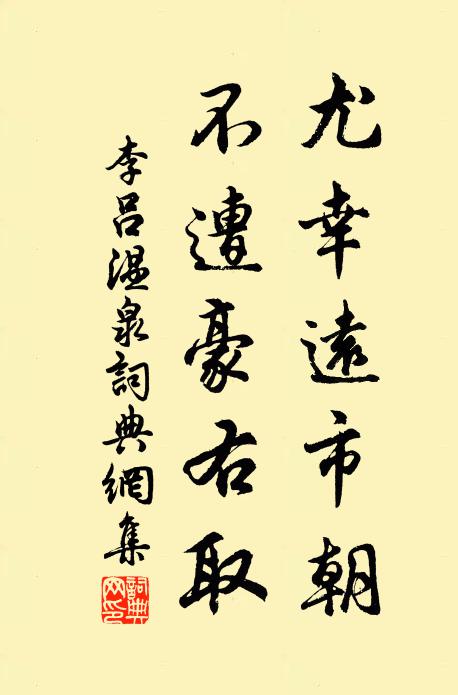 尤幸遠市朝
不遭豪右取
李吕温泉詞典網集
詞典网印